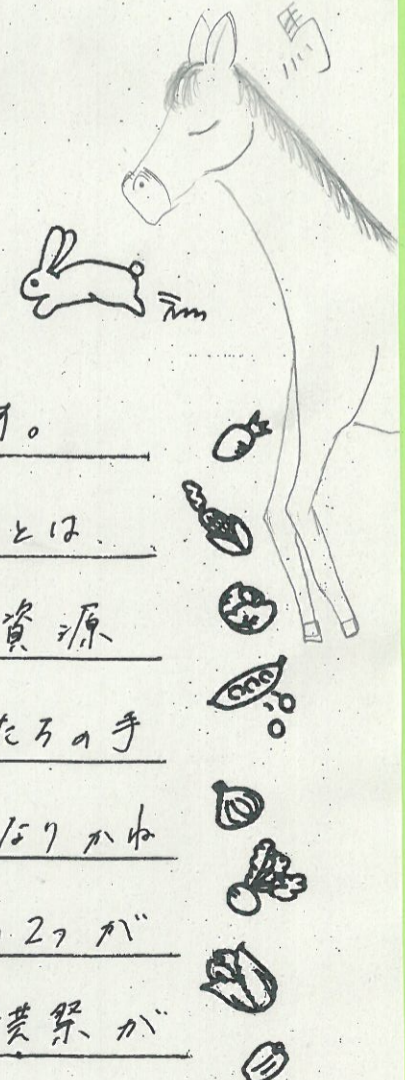 す。
とは、
資源
たちの手
なりかね
2つが
農祭が